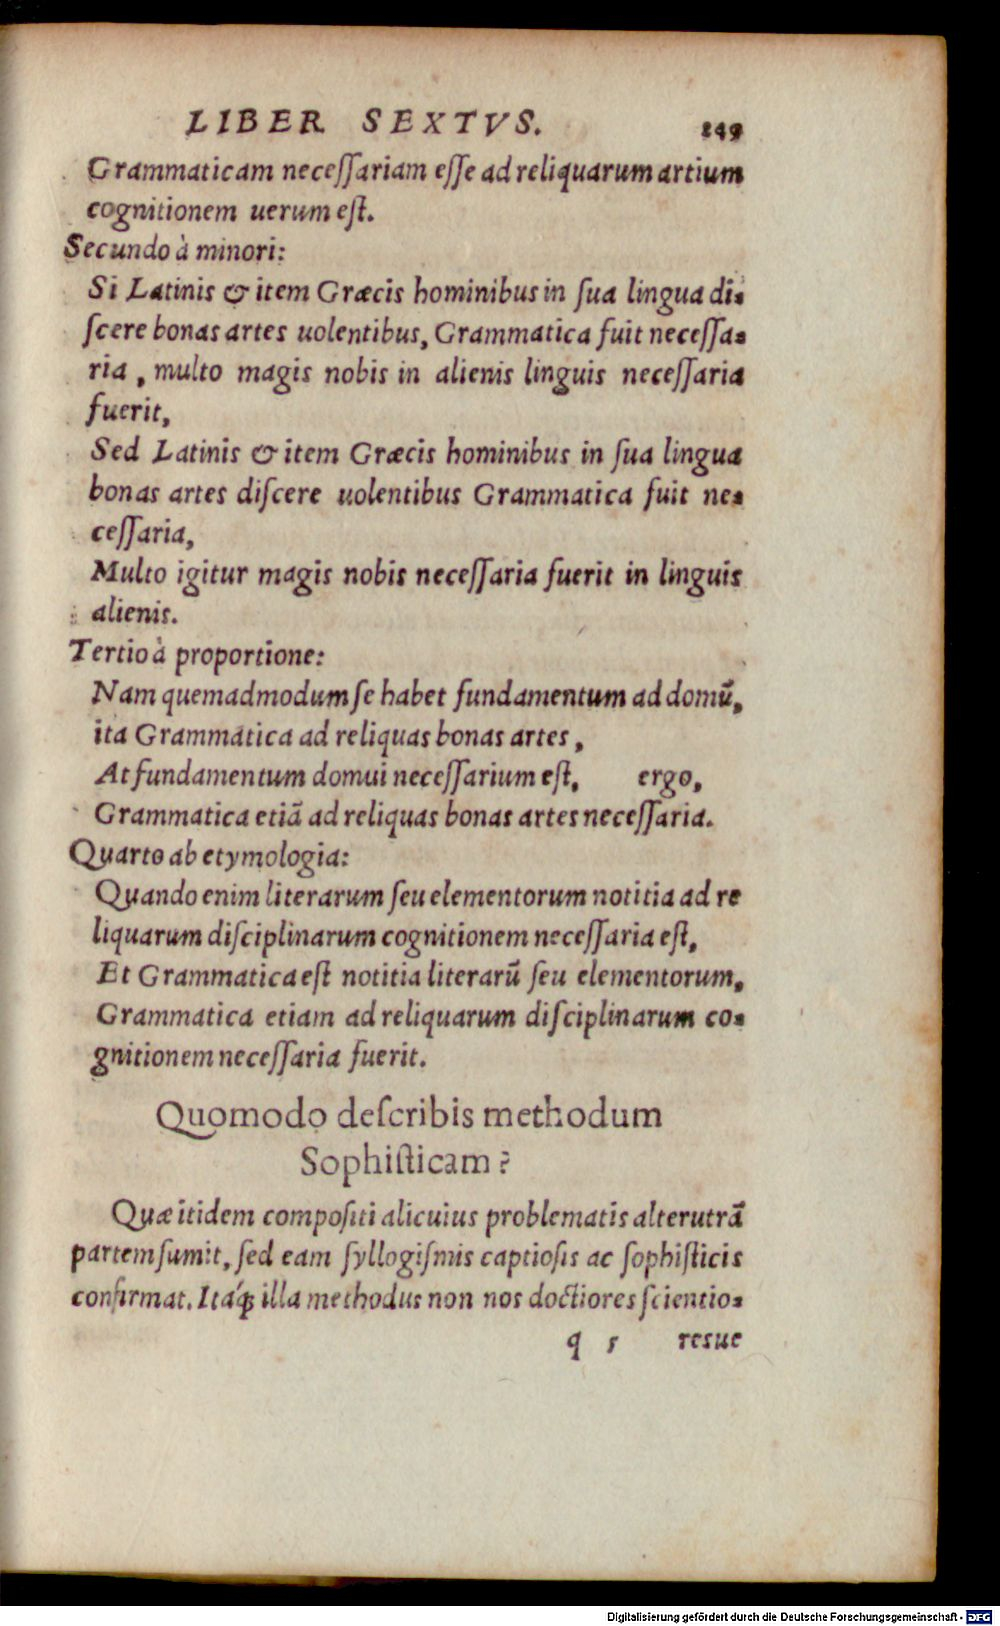 LIBER SEXTVS. 249
Grammaticam neceſſariam eſſe ad reliquarum artium
cognitionem uerum eſt.
Secundo à minori:
Si Latinis & item Græcis hominibus in ſua lingua di-
ſcere bonas artes uolentibus, Grammatica fuit neceſſa-
ria, multo magis nobis in alienis linguis neceſſaria
fuerit,
Sed Latinis & item Græcis hominibus in ſua lingua
bonas artes diſcere uolentibus Grammatica fuit ne-
ceſſaria,
Multo igitur magis nobis neceſſaria fuerit in linguis
alienis.
Tertio à proportione:
Nam quemadmodum ſe habet fundamentum ad domū,
ita Grammatica ad reliquas bonas artes,
At fundamentum domui neceſſarium eſt, ergo,
Grammatica etiā ad reliquas bonas artes neceſſaria.
Quarto ab etymologia:
Quando enim literarum ſeu elementorum notitia ad re
liquarum diſciplinarum cognitionem neceſſaria eſt,
Et Grammatica eſt notitia literarū ſeu elementorum,
Grammatica etiam ad reliquarum diſciplinarum co-
gnitionem neceſſaria fuerit.
Quomodo deſcribis methodum
Sophiſticam?
Quæ itidem compoſiti alicuius problematis alterutrā
partem ſumit, ſed eam ſyllogiſmis captioſis ac ſophiſticis
confirmat. Itaq́; illa methodus non nos doctiores ſcientio-
q 5 resue
Digitalisierung gefördert durch die Deutsche Forschungsgemeinschaft - DFG